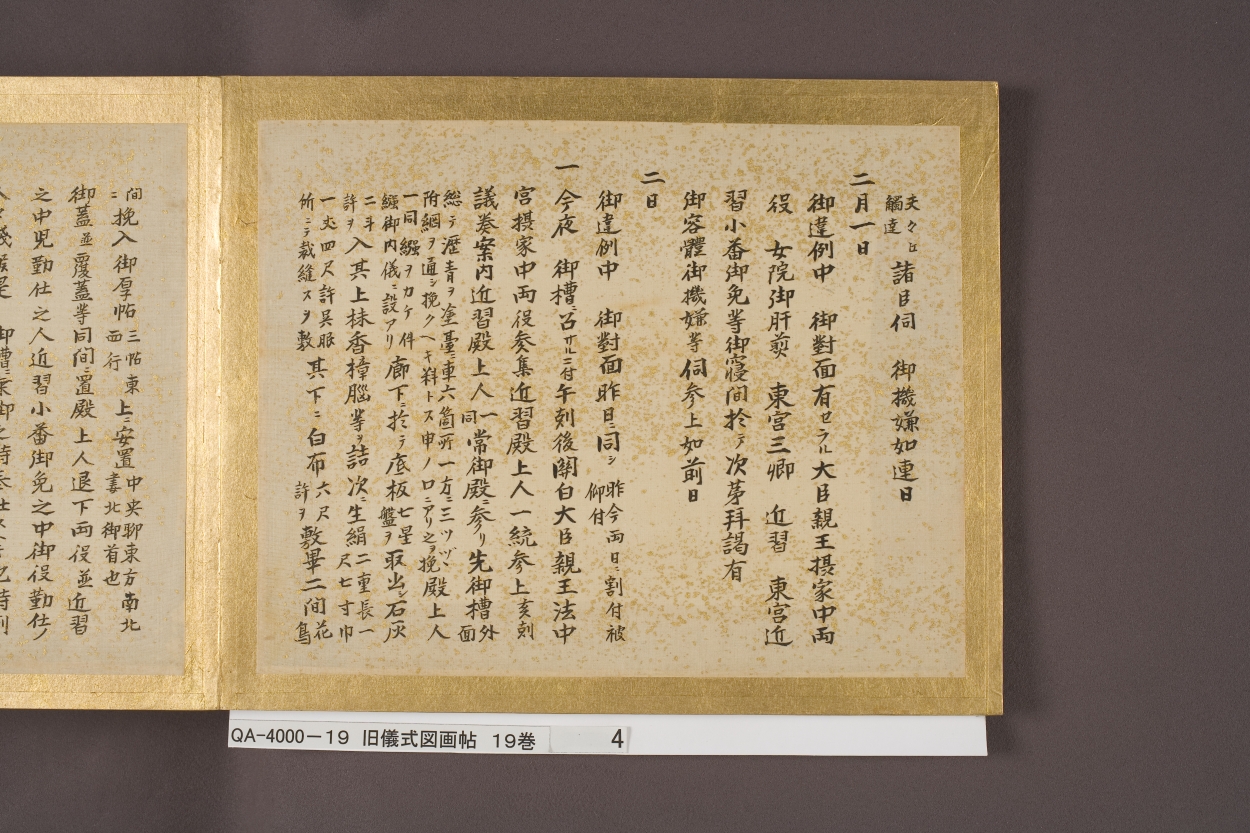 夫々江觸達諸臣伺　御機嫌如連日
二月一日
御違例中　御對面有セラル大臣親王摂家中両
役　女院御肝煎　東宮三卿　近習　東宮近
習小番御免等御寝間於テ次茅拜謁有
御容體御機嫌等伺参上如前日
二日
御違例中　御對面昨日ニ同シ昨今両日ニ割付被仰付
一今夜　御槽ニ召サルルニ付午刻後關白大臣親王法中
宮摂家中両役参集近習殿上人一統参上亥刻
議奏案内近習殿上人一同常御殿ニ参リ先御槽外面
総テ瀝青ヲ塗臺ニ車六箇所一方ニ三ツヅヽ附綱ヲ通シ挽クヘキ料トス申ノ口ニアリ之ヲ挽殿上人
一同綴ヲカケ件御内儀ニ設アリ廊下ニ於テ底板七星盤ヲ取出シ石灰
二斗許ヲ入其上抹香樟腦等ヲ詰次ニ生絹二重長一尺七寸巾
一丈四尺許呉服所ニテ裁縫スヲ敷其下ニ白布六尺許ヲ敷畢二間花鳥
間ニ挽入御厚帖三帖東西行上ニ安置中央聊東方南北妻北御首也
御蓋並覆蓋等同間ニ置殿上人退下両役並近習
之中児勤仕之人近習小番御免之中御役勤仕ノ
QA-4000-19　旧儀式図画帖　19巻　4